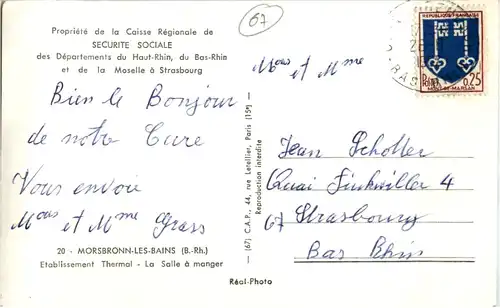 67
Propriété de la Caisse Régionale de
SECURITE SOCIALE
des Départements du Haut-Rhin, du Bas-Rhin
et de la Moselle à Strasbourg
Bien le Bonjour
de notre Cure
Vous envoie
Mous et Mme Grass
20 - MORSBRONN-LES-BAINS (B.-Rh.)
Etablissement Thermal - La Salle à manger
(67) C.A.P., 44, rue Letellier, Paris (15e)
Reproduction interdite
Réal-Photo
REPUBLIQUE FRANÇAISE
0,25
MONT-DE-MARSAN
Mous et Mme
Jean Scholler
Quai Finkwiller 4
67 Strasbourg
Bas Rhin